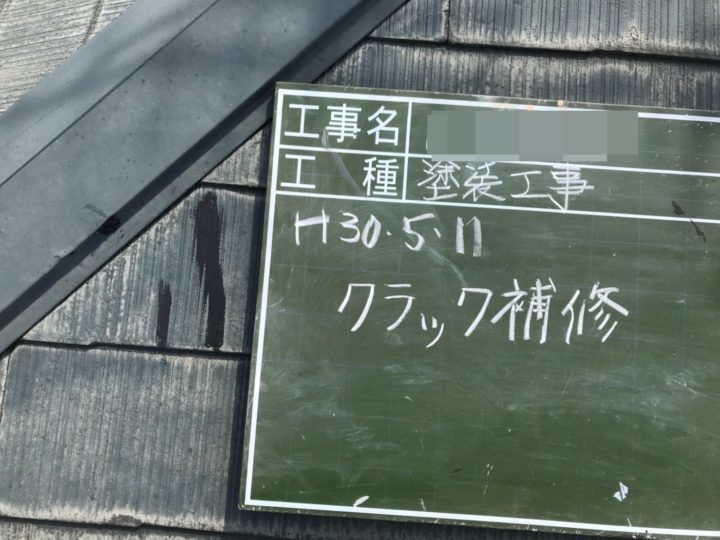 工事名
工種 塗装工事
H30.5.11
クラック補修